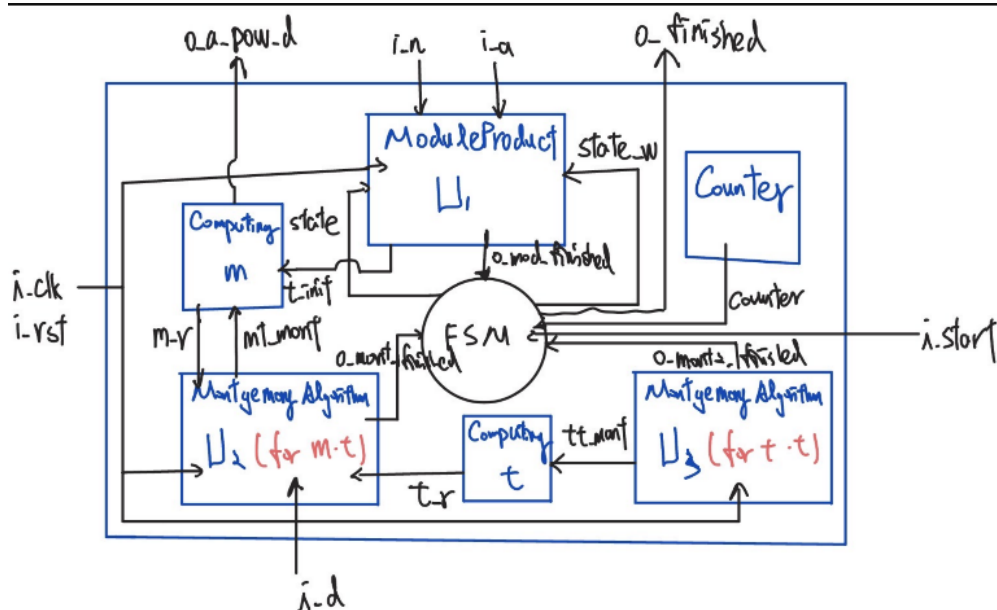 o_a_pow_d
i_n
i_a
o_finished
ModuleProduct
U₁
state_w
Counter
Computing
m
state
t_init
o_mod_finished
i_clk
i_rst
m_r
mt_mont
FSM
Counter
i_start
o_mont_finished
o_mont2_finished
Montgemory Algorithm
U₂ (for m·t)
Computing
t
tt_mont
Montgemory Algorithm
U₃ (for t·t)
t_r
i_d